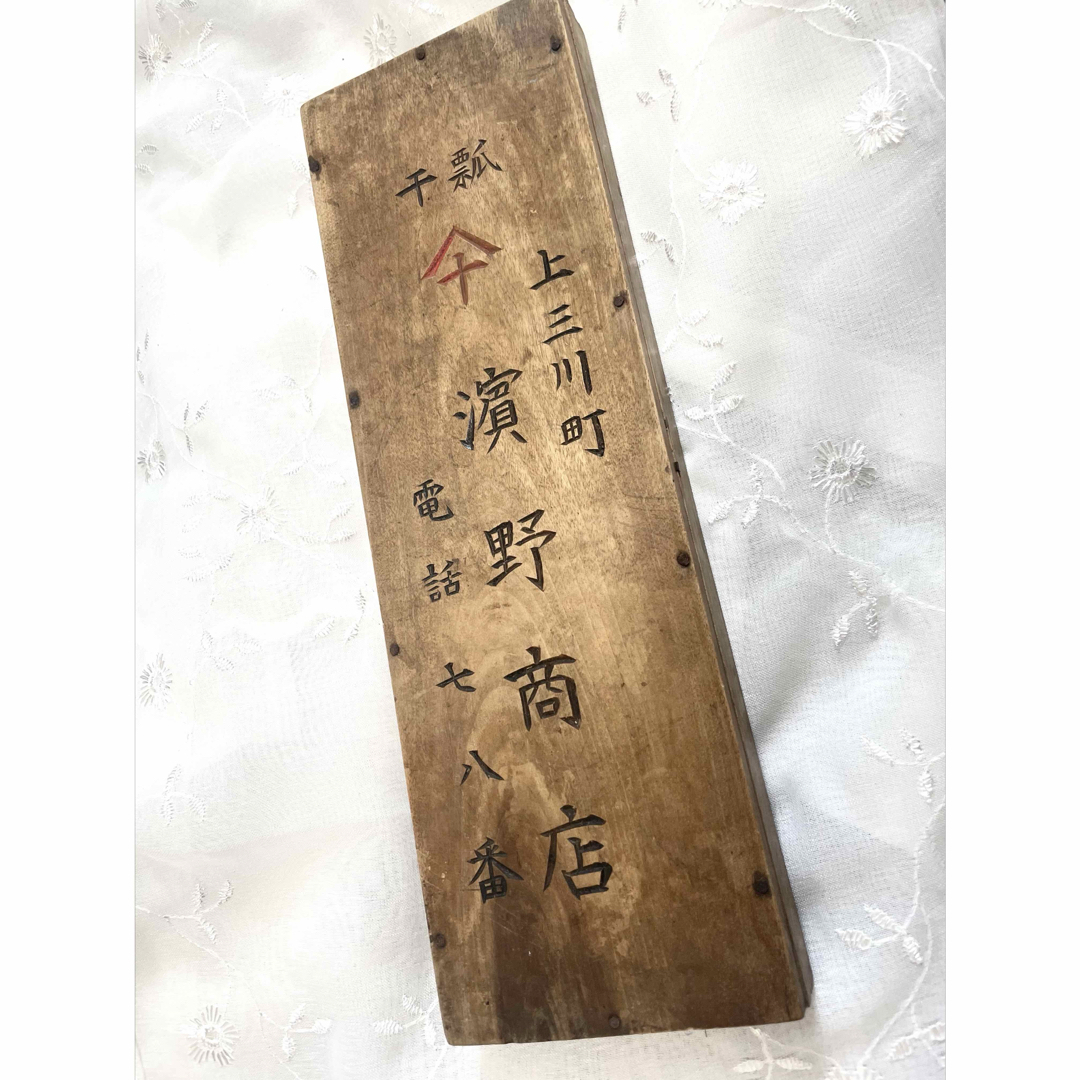 干瓢
十
上三川町
濱野商店
電話七八番